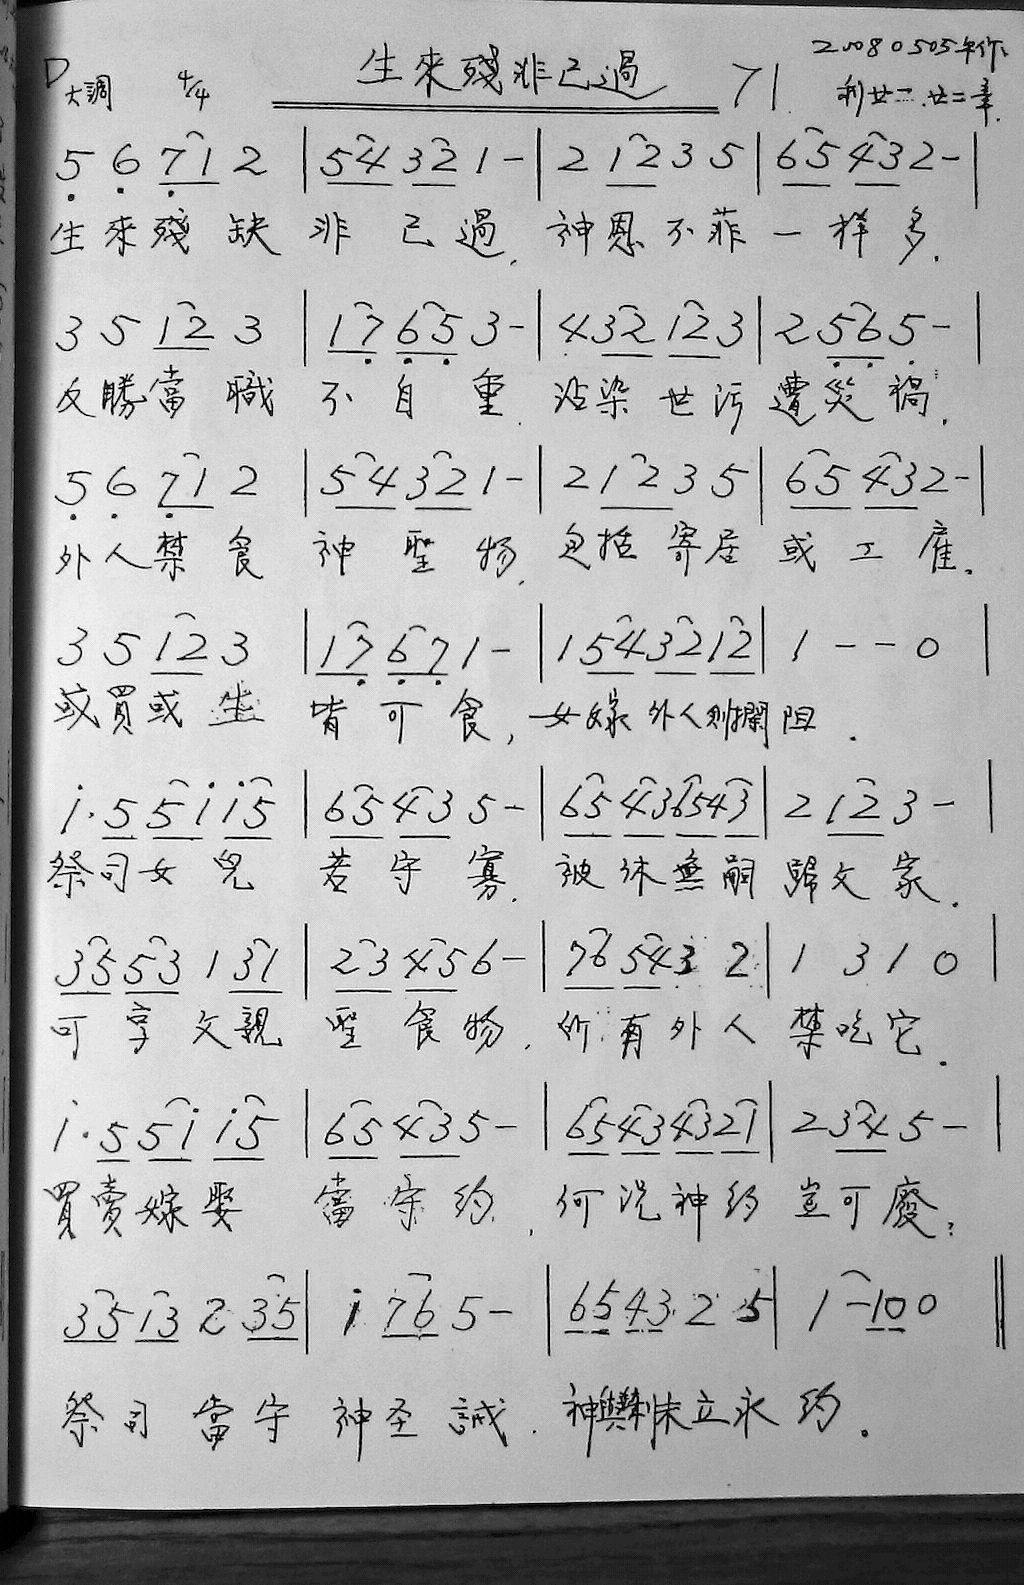 20080505年作
D大調 4/4 生來殘非己過 71 利廿一.廿二章.
5 6 7 1 2 | 5 4 3 2 1 - | 2 1 2 3 5 | 6 5 4 3 2 - |
生來殘缺非己過,神恩不菲一样多.
3 5 1 2 3 | 1 7 6 5 3 - | 4 3 2 1 2 3 | 2 5 6 5 - |
反勝當職不自重,沾染世污遭災禍.
5 6 7 1 2 | 5 4 3 2 1 - | 2 1 2 3 5 | 6 5 4 3 2 - |
外人禁食神聖物,包括寄居或工雇.
3 5 1 2 3 | 1 7 6 7 1 - | 1 5 4 3 2 1 2 | 1 - - 0 |
或買或生皆可食,女嫁外人則攔阻.
i. 5 5 i i 5 | 6 5 4 3 5 - | 6 5 4 3 6 5 4 3 | 2 1 2 3 - |
祭司女兒若守寡,被休無嗣歸父家.
3 5 5 3 1 3 1 | 2 3 4 5 6 - | 7 6 5 4 3 2 | 1 3 1 0 |
可享父親聖食物,所有外人禁吃它.
i. 5 5 i i 5 | 6 5 4 3 5 - | 6 5 4 3 4 3 2 1 | 2 3 4 5 - |
買賣嫁娶當守約,何况神约豈可廢;
3 5 1 3 2 3 5 | i 7 6 5 - | 6 5 4 3 2 5 | 1 - 1 0 0 ||
祭司當守神圣誡.神與利未立永约.